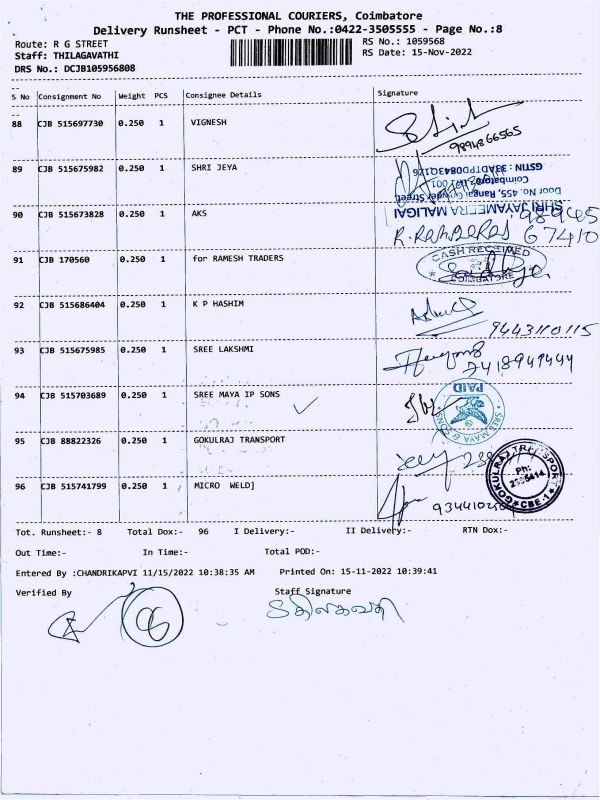 THE PROFESSIONAL COURIERS, Coimbatore
Delivery Runsheet - PCT - Phone No.:0422-3505555 - Page No.:8
Route: R G STREET RS No.: 1059568
Staff: THILAGAVATHI RS Date: 15-Nov-2022
DRS No.: DCJB105956808
S No Consignment No Weight PCS Consignee Details Signature
88 CJB 515697730 0.250 1 VIGNESH
9894866565
89 CJB 515675982 0.250 1 SHRI JEYA
GSTIN : 33ADTPD0843Q1Z6
Coimbatore-641 001
Door No. 455, Rangai Gowder Street,
SHRI JAYAMEERA MALIGAI
90 CJB 515673828 0.250 1 AKS
98945
67410
91 CJB 170560 0.250 1 for RAMESH TRADERS
CASH RECEIVED
COIMBATORE
92 CJB 515686404 0.250 1 K P HASHIM
9443110115
93 CJB 515675985 0.250 1 SREE LAKSHMI
94 CJB 515703689 0.250 1 SREE MAYA IP SONS
PAID
SREE MAYA & SONS
95 CJB 88822326 0.250 1 GOKULRAJ TRANSPORT
GOKULRAJ TRANSPORT
Ph:
CBE-1
96 CJB 515741799 0.250 1 MICRO WELD]
Tot. Runsheet:- 8 Total Dox:- 96 I Delivery:- II Delivery:- RTN Dox:-
Out Time:- In Time:- Total POD:-
Entered By :CHANDRIKAPVI 11/15/2022 10:38:35 AM Printed On: 15-11-2022 10:39:41
Verified By Staff Signature
திலகவதி